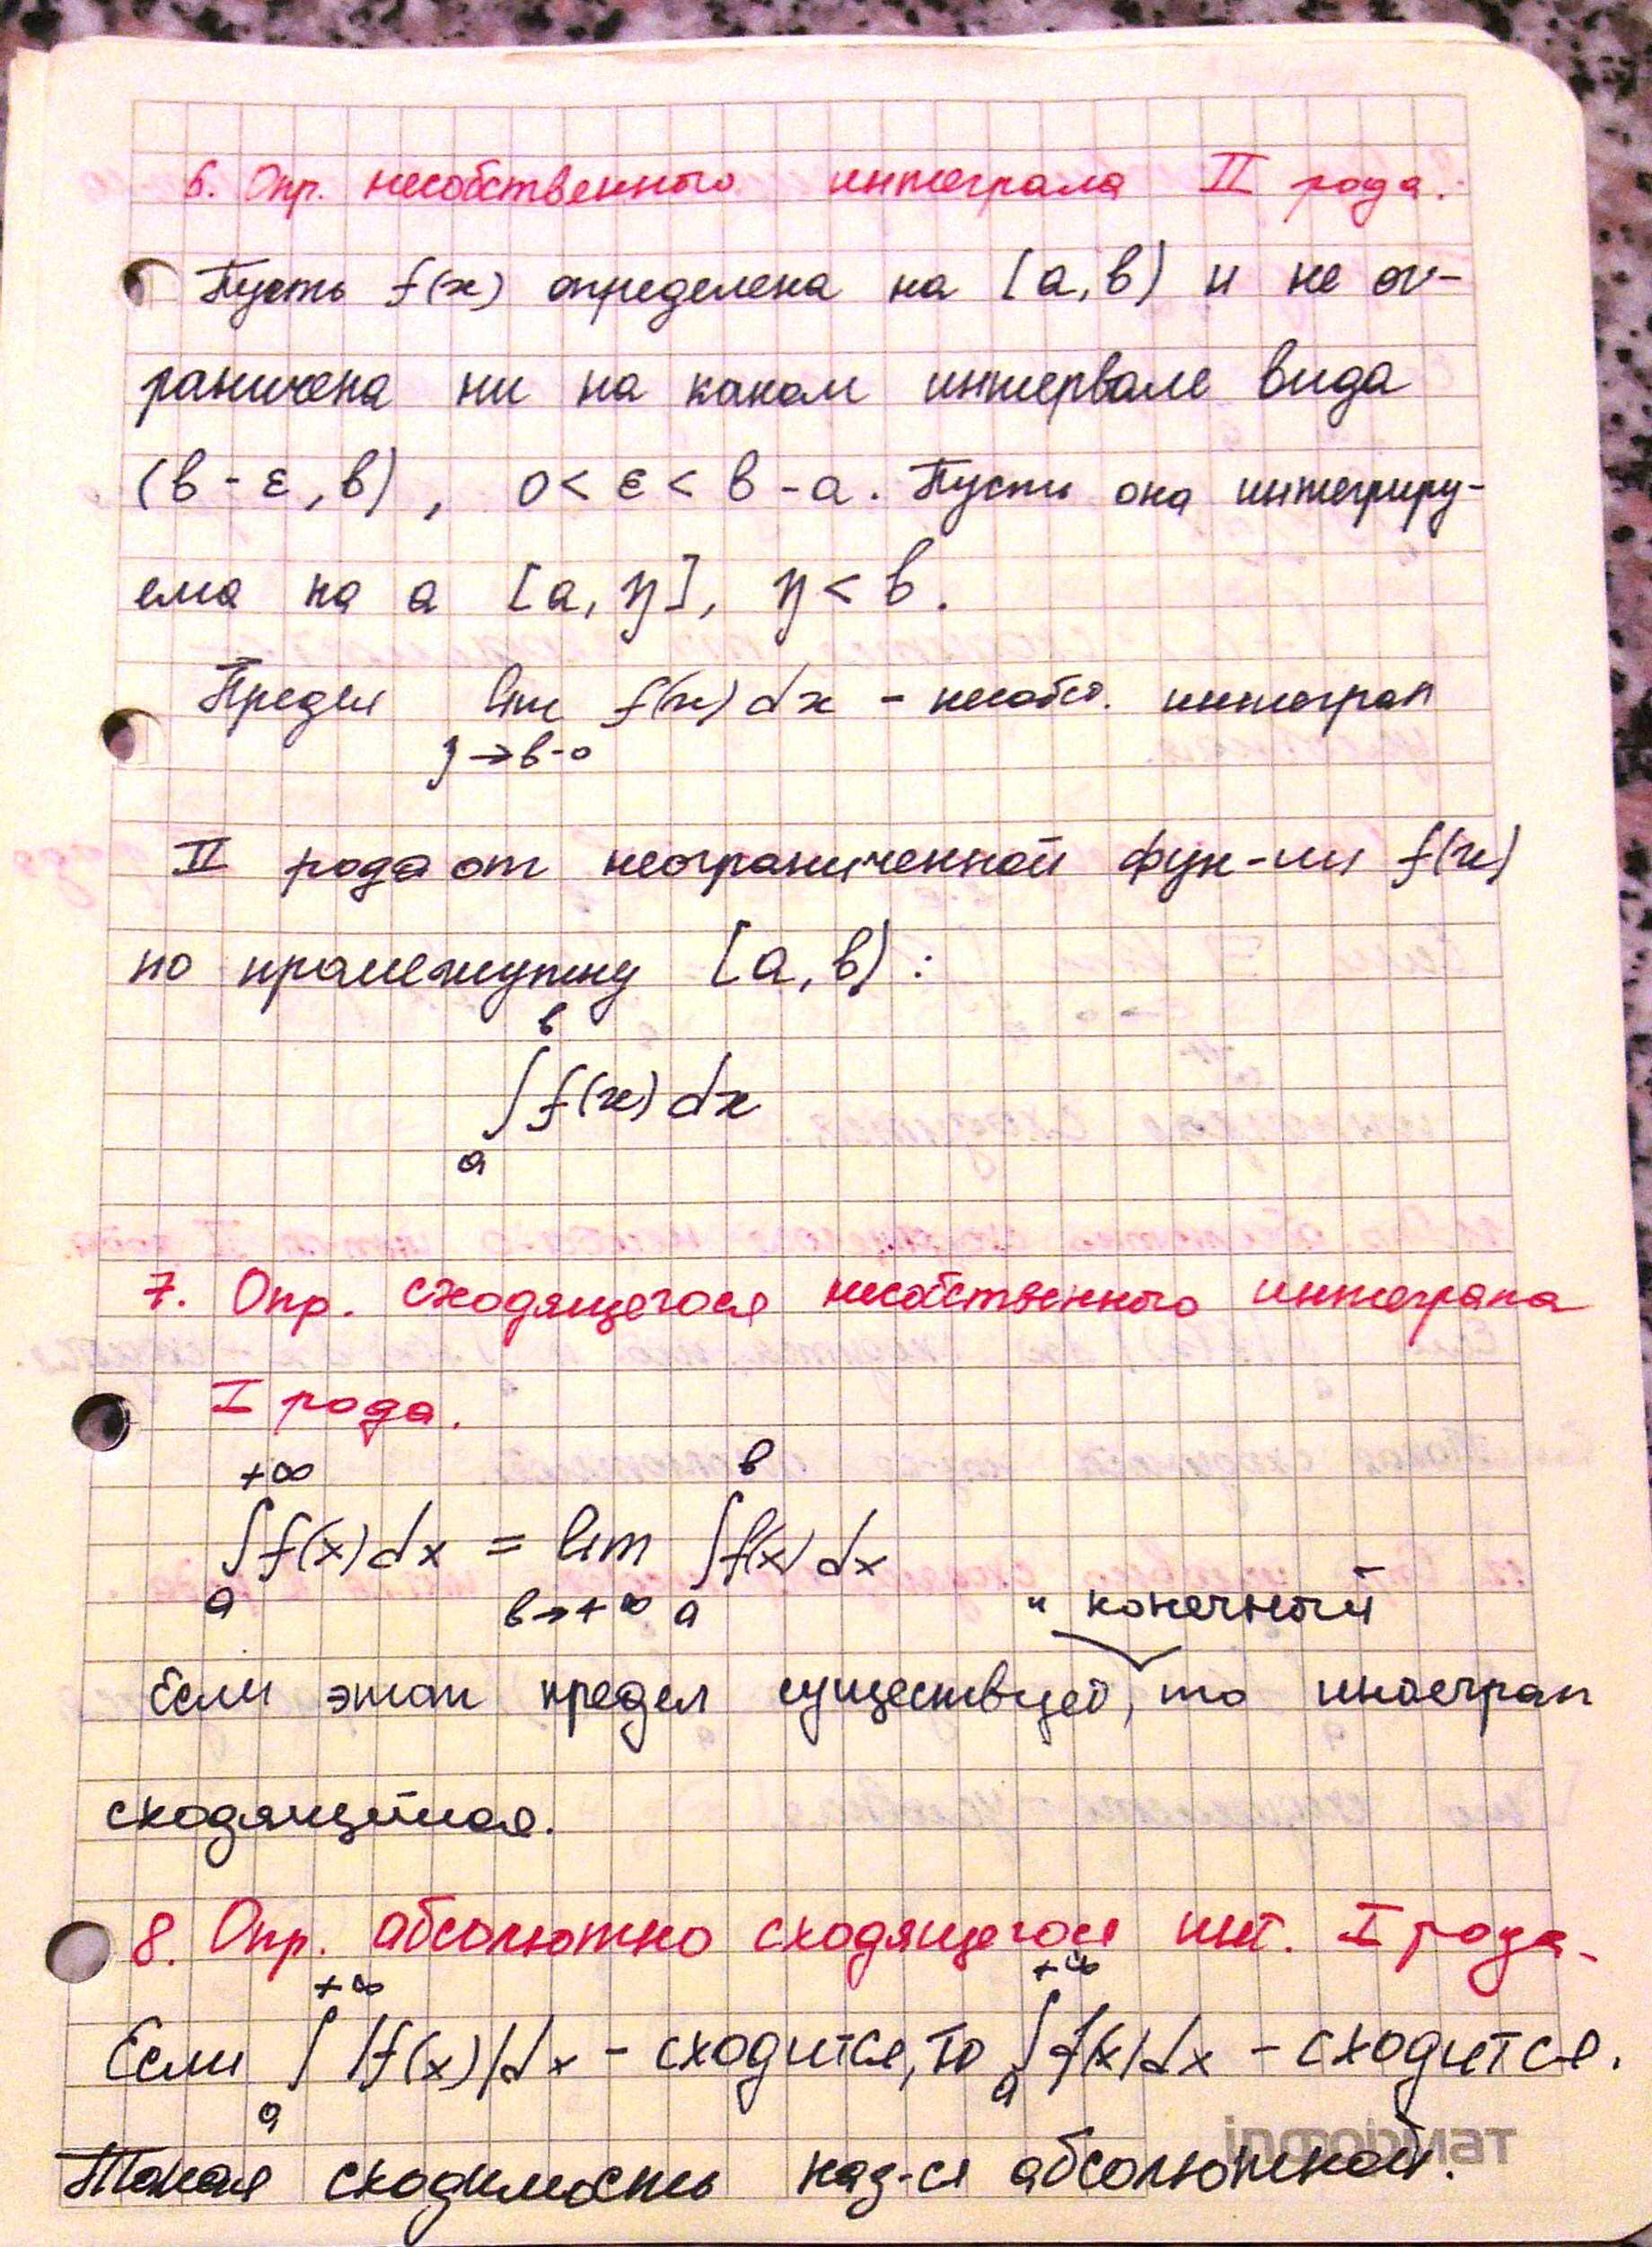 6. Опр. несобственного интеграла II рода.
Пусть f(x) определена на [a, b) и не ог-
раничена ни на каком интервале вида
(b - ε, b), 0 < ε < b - a. Пусть она интегриру-
ема на a [a, η], η < b.
Предел lim f(x) dx - несобст. интеграл
η → b-0
II рода от неограниченной фун-ии f(x)
по промежутку [a, b) :
b
∫ f(x) dx
a
7. Опр. сходящегося несобственного интеграла
I рода.
+∞ b
∫ f(x) dx = lim ∫ f(x) dx
a b→+∞ a
и конечный
Если этот предел существует, то интеграл
сходящийся.
8. Опр. абсолютно сходящегося инт. I рода.
+∞ +∞
Если ∫ |f(x)| dx - сходится, то ∫ f(x) dx - сходится.
a a
Такая сходимость наз-ся абсолютной.
інформат